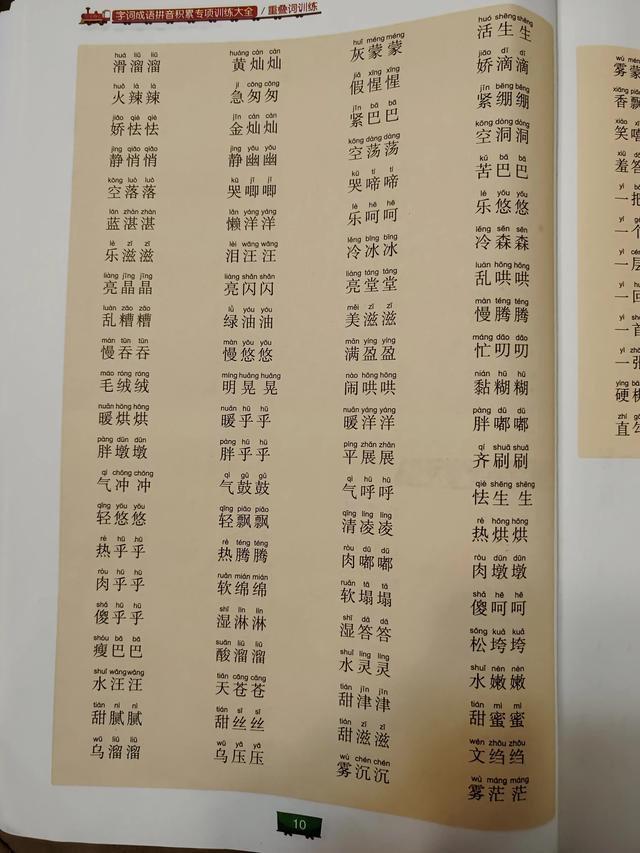 字词成语拼音积累专项训练大全 / 重叠词训练
huá liū liū huáng càn càn huī méng méng huó shēng shēng
滑溜溜 黄灿灿 灰蒙蒙 活生生
huǒ là là jí cōng cōng jiǎ xīng xīng jiāo dī dī
火辣辣 急匆匆 假惺惺 娇滴滴
jiāo qiè qiè jīn càn càn jǐn bā bā jǐn bēng bēng
娇怯怯 金灿灿 紧巴巴 紧绷绷
jìng qiāo qiāo jìng yōu yōu kōng dàng dàng kōng dòng dòng
静悄悄 静幽幽 空荡荡 空洞洞
kōng luò luò kū jī jī kū tí tí kǔ bā bā
空落落 哭唧唧 哭啼啼 苦巴巴
lán zhàn zhàn lǎn yáng yáng lè hē hē lè yōu yōu
蓝湛湛 懒洋洋 乐呵呵 乐悠悠
lè zī zī lèi wāng wāng lěng bīng bīng lěng sēn sēn
乐滋滋 泪汪汪 冷冰冰 冷森森
liàng jīng jīng liàng shǎn shǎn liàng táng táng luàn hōng hōng
亮晶晶 亮闪闪 亮堂堂 乱哄哄
luàn zāo zāo lǜ yóu yóu měi zī zī màn téng téng
乱糟糟 绿油油 美滋滋 慢腾腾
màn tūn tūn màn yōu yōu mǎn yíng yíng máng dāo dāo
慢吞吞 慢悠悠 满盈盈 忙叨叨
máo róng róng míng huǎng huǎng nào hōng hōng nián hú hú
毛绒绒 明晃晃 闹哄哄 黏糊糊
nuǎn hōng hōng nuǎn hū hū nuǎn yáng yáng pàng dū dū
暖烘烘 暖乎乎 暖洋洋 胖嘟嘟
pàng dūn dūn pàng hū hū píng zhǎn zhǎn qí shuā shuā
胖墩墩 胖乎乎 平展展 齐刷刷
qì chōng chōng qì gǔ gǔ qì hū hū qiè shēng shēng
气冲冲 气鼓鼓 气呼呼 怯生生
qīng yōu yōu qīng piāo piāo qīng líng líng rè hōng hōng
轻悠悠 轻飘飘 清凌凌 热烘烘
rè hū hū rè téng téng ròu dū dū ròu dūn dūn
热乎乎 热腾腾 肉嘟嘟 肉墩墩
ròu hū hū ruǎn mián mián ruǎn tā tā shǎ hē hē
肉乎乎 软绵绵 软塌塌 傻呵呵
shǎ hū hū shī lín lín shī dā dā sōng kuǎ kuǎ
傻乎乎 湿淋淋 湿答答 松垮垮
shòu bā bā suān liū liū shuǐ líng líng shuǐ nèn nèn
瘦巴巴 酸溜溜 水灵灵 水嫩嫩
shuǐ wāng wāng tiān cāng cāng tián jīn jīn tián mì mì
水汪汪 天苍苍 甜津津 甜蜜蜜
tián nì nì tián sī sī tián zī zī wén zhōu zhōu
甜腻腻 甜丝丝 甜滋滋 文绉绉
wū liū liū wū yā yā wù chén chén wù máng máng
乌溜溜 乌压压 雾沉沉 雾茫茫
10
wù méng
雾蒙
xiāng piāo
香飘
xiào xī
笑嘻
xiū dā
羞答
yì bǎ
一把
yí
一个
yì
一层
yì
一回
yì
一首
yì
一张
硬
zhí
直